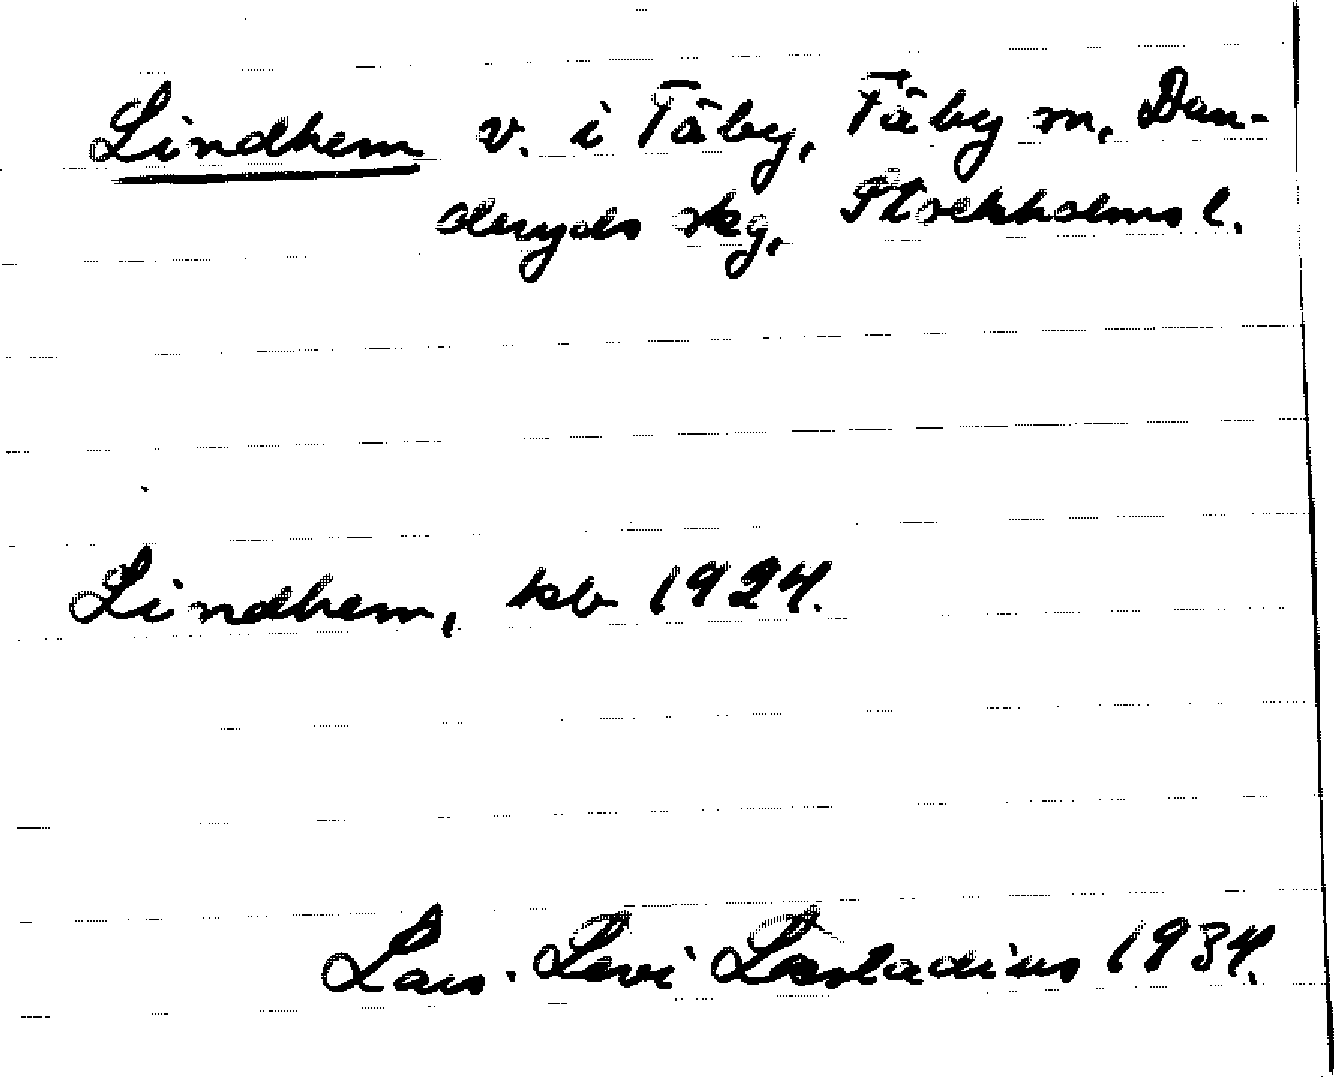 Lindhem v. i Täby, Täby sn, Dan-
deryds skg, Stockholms l.
Lindhem, kb 1924.
Lars-Levi Læstadius 1934.